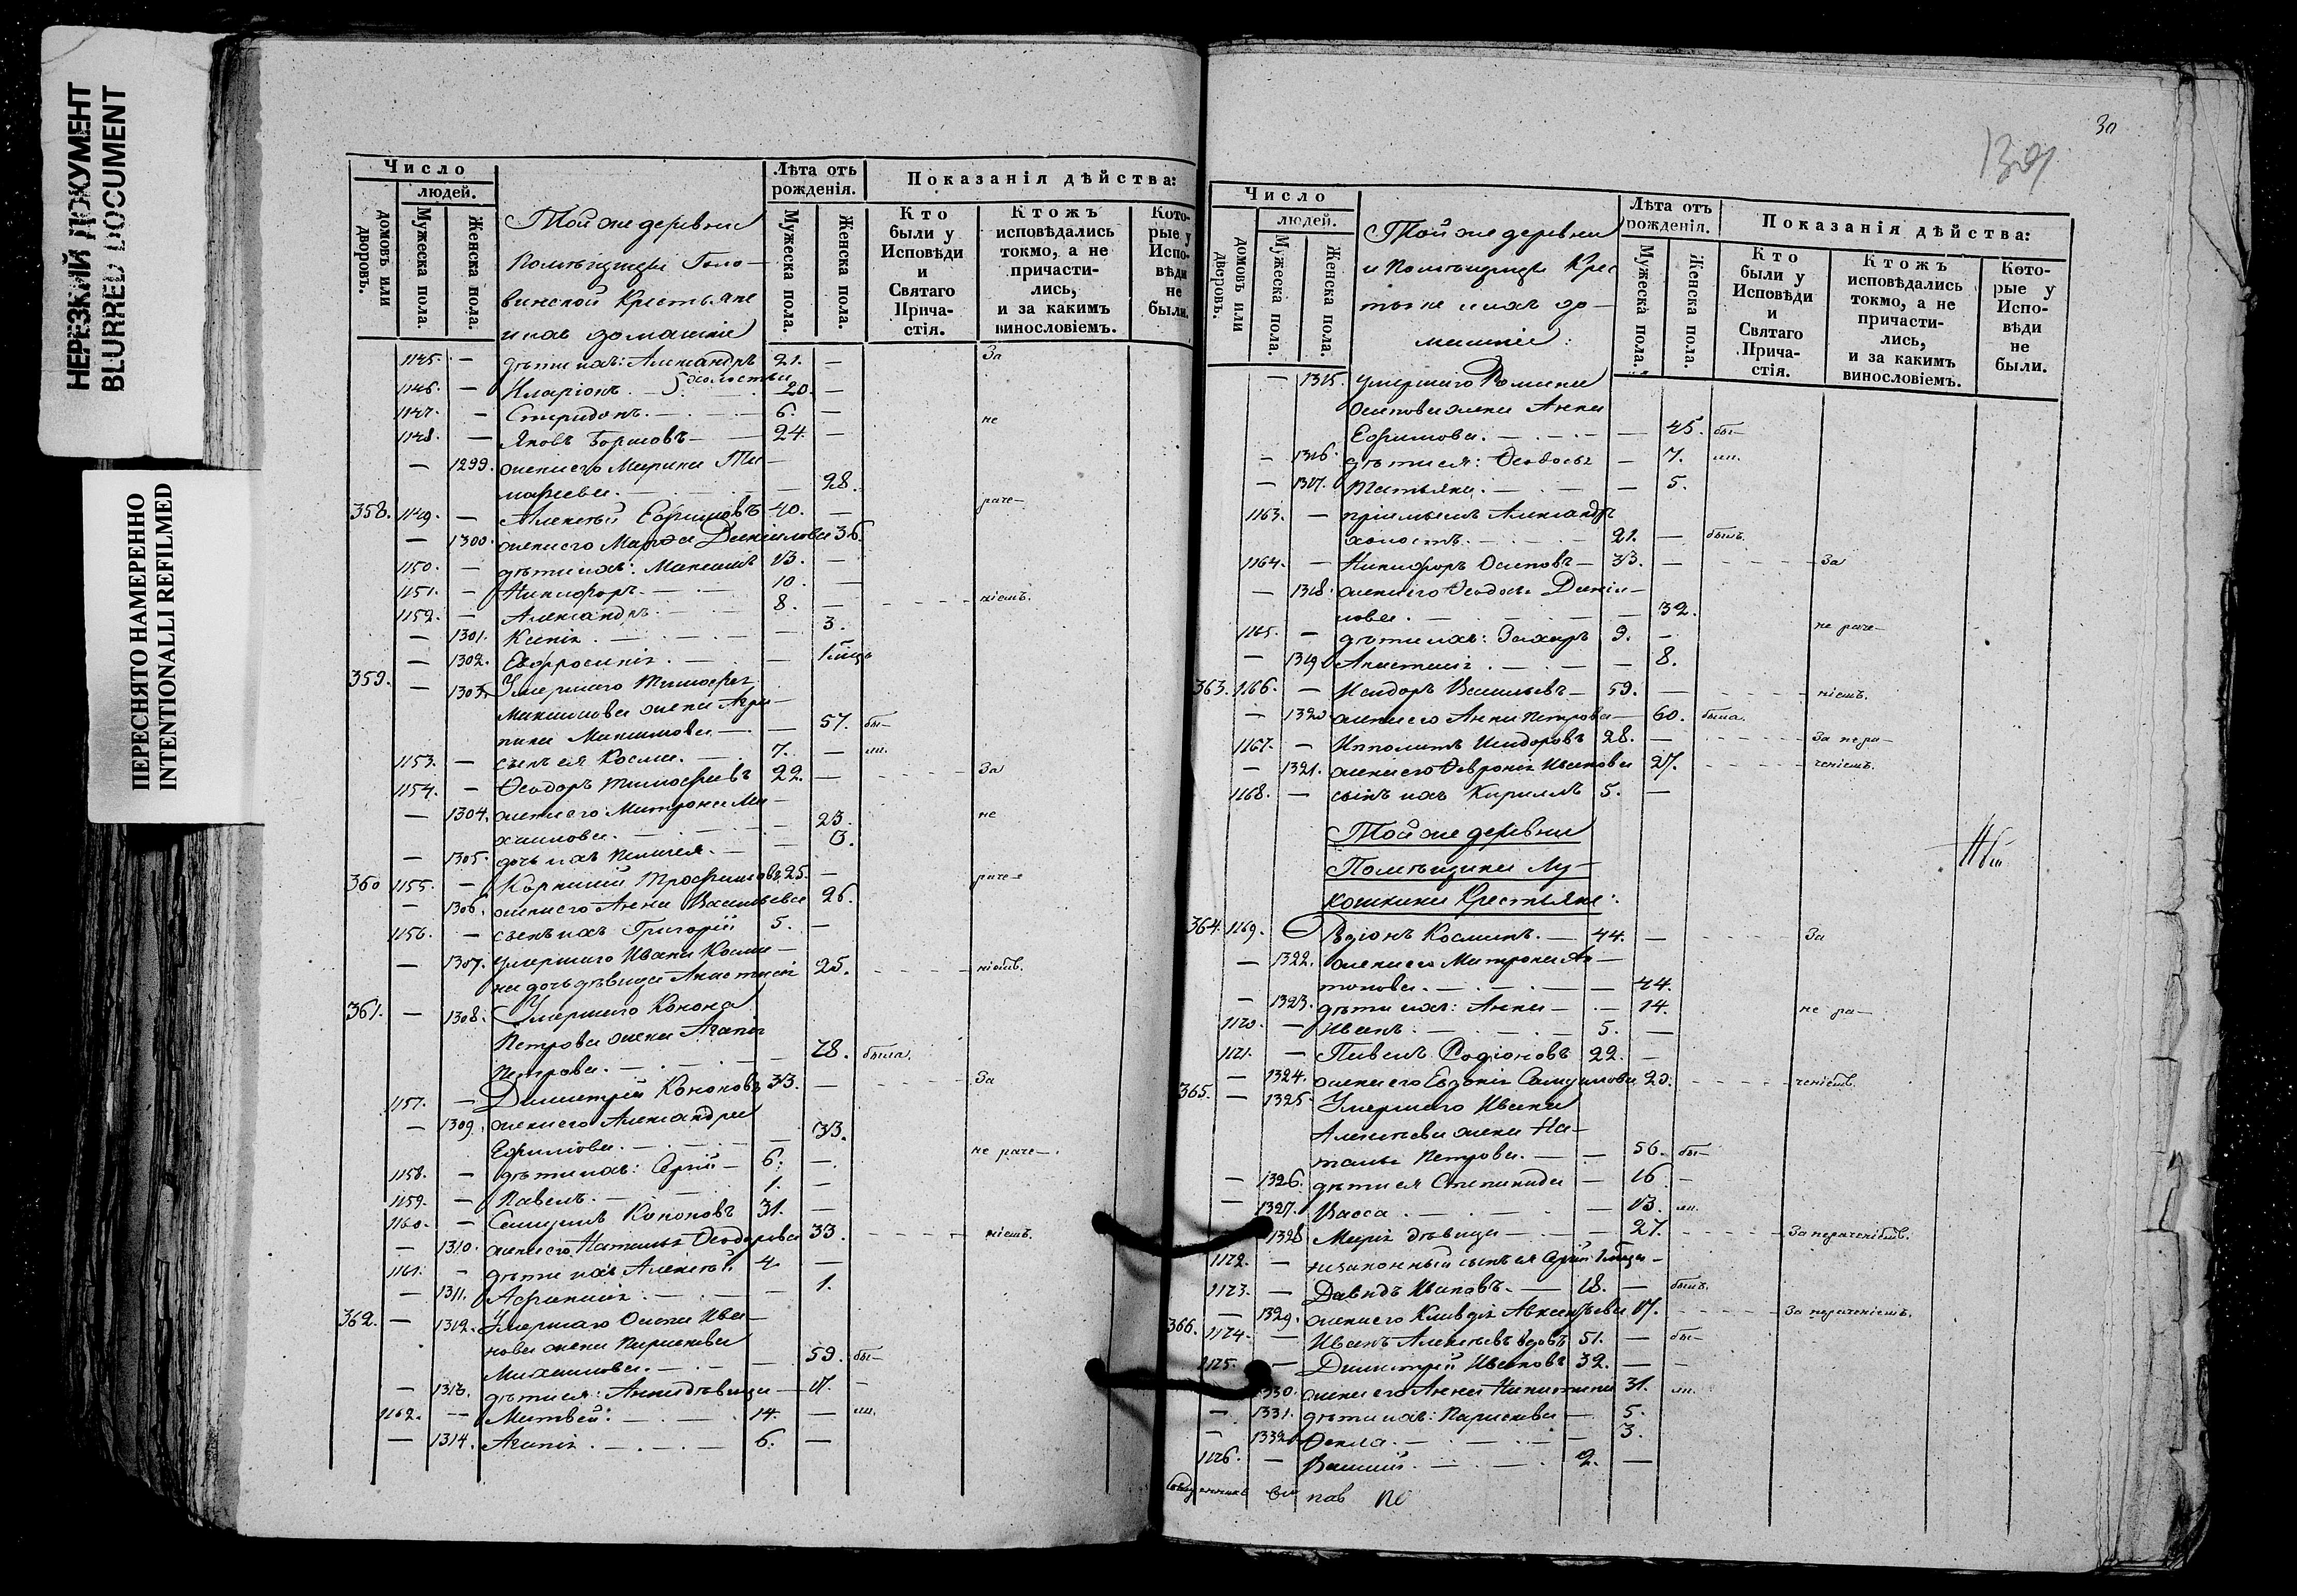 НЕРЕЗКИЙ ДОКУМЕНТ
BLURRED DOCUMENT
ПЕРЕСНЯТО НАМЕРЕННО
INTENTIONALLI REFILMED
Число
людей.
домовъ или дворовъ.
Мужеска пола.
Женска пола.
Той же деревни
помѣщицы Голо-
винской Крестьяне
и ихъ домашніе
Лѣта отъ рожденія.
Мужеска пола.
Женска пола.
Показанія дѣйства:
Кто были у Исповѣди и Святаго Прича-стія.
Ктожъ исповѣдались токмо, а не причасти-лись, и за какимъ винословіемъ.
Кото-рые у Испо-вѣди не были.
1145. — дѣти ихъ: Александръ 21. — За
1146. — Иларіонъ холосты 20. —
1147. — Спиридонъ. 6. — не
1148. — Яковъ Борисовъ 24. —
— 1299. жена его Марина Ти-
мофеева. — 28.
358. 1149. — Алексѣй Ефимовъ 40. — раче-
— 1300. жена его Марѳа Данилова 36.
1150. — дѣти ихъ: Максимъ 13. —
1151. — Никифоръ 10. —
1152. — Александръ 8. — ніемъ.
— 1301. Ксенія — 3.
— 1302. Евфросинія —
359. — 1303. Умершаго Тимофея
Максимова жена Агри-
пина Максимова — 57. бы-
1153. — сынъ ея Косма. 7. — ли.
1154. — Ѳеодоръ Тимофеевъ 22. — За
— 1304. жена его Матрона Ми-
хаилова. — 23. не
— 1305. дочь ихъ Пелагея. — 3.
360 1155. — Корнилий Трофимовъ 25. — раче-
— 1306. жена его Анна Васильева 26.
1156. — сынъ ихъ Григорій 5. —
— 1307. умершаго Ивана Косми-
на дочь дѣвица Анастасія 25. ніемъ.
361. — 1308. Умершаго Конона
Петрова жена Агапія
Петрова. — 78. была.
1157. — Димитрій Кононовъ 33. — За
— 1309. жена его Александра
Ефимова. — 33.
1158. — дѣти ихъ: Сергій 6. — не раче-
1159. — Павелъ. 1. —
1160. — Самуилъ Кононовъ 31. —
— 1310. жена его Наталья Ѳеодорова 33. ніемъ.
1161. — дѣти ихъ Алексѣй. 4. —
— 1311. Афанасія — 1.
362. — 1312. Умершаго Осипа Ива-
нова жена Параскева
Михаилова. — 59. бы-
— 1313. дѣти ея: Анна дѣвица — 17. —
1162. — Матвей: 14. — ли.
— 1314. Агапія 6. —
30
Число
людей.
домовъ или дворовъ.
Мужеска пола.
Женска пола.
Той же деревни
и помѣщицы Крес
тьяне и ихъ до-
машніе:
Лѣта отъ рожденія.
Мужеска пола.
Женска пола.
Показанія дѣйства:
Кто были у Исповѣди и Святаго Прича-стія.
Ктожъ исповѣдались токмо, а не причасти-лись, и за какимъ винословіемъ.
Кото-рые у Испо-вѣди не были.
— 1315. умершаго Романа
Осипова жена Анна
Ефимова. — 45. бы-
— 1316. дѣти ея: Ѳеодосья — 7. ли.
— 1317. Татьяна. — 5.
1163. — пріемышъ Александръ
холостъ. 21. — былъ.
1164. — Никифоръ Осиповъ 33. — За
— 1318. жена его Ѳеодосья Дани-
лова. — 32.
1165. — дѣти ихъ: Захаръ 9. — не раче-
— 1319. Анастасія — 8.
363. 1166. — Исидоръ Васильевъ 59. — ніемъ.
— 1320. жена его Анна Петрова 60. была.
1167. — Ипполитъ Исидоровъ 28. — За нера-
— 1321. жена его Февронія Иванова 27. ченіемъ.
1168. — сынъ ихъ Кириллъ 5. —
Той же деревни
Помѣщика Лу-
кошкина Крестьяне:
364. 1169. — Родіонъ Косминъ. 44. — За
— 1322. жена его Матрона Ан-
тонова. — 44.
— 1323. дѣти ихъ: Анна — 14. не ра-
1170. — Иванъ: 5. —
1171. — Павелъ Родіоновъ 22. —
— 1324. жена его Евгенія Самуилова 20. ченіемъ.
365. — 1325. Умершаго Ивана
Алексѣева жена На-
талья Петрова. — 56. бы-
— 1326. дѣти ея Степанида — 16 —
— 1327. Васса — 13. ли.
1328 Марія дѣвица — 27. За нераченіемъ.
1172. — незаконный сынъ ея Сергій
1173. — Давидъ Ивановъ. 18. — былъ.
— 1329. жена его Клавдія Авксентьева 17. За нераченіемъ.
366. 1174. — Иванъ Алексѣевъ вдовъ 51. — бы-
1175. — Димитрій Ивановъ 32. — —
1330. жена его Анна Никитина 31. ли.
— 1331. дѣти ихъ: Параскева — 5.
— 1332. Ѳекла. — 3.
1176. — Василий. 2. —